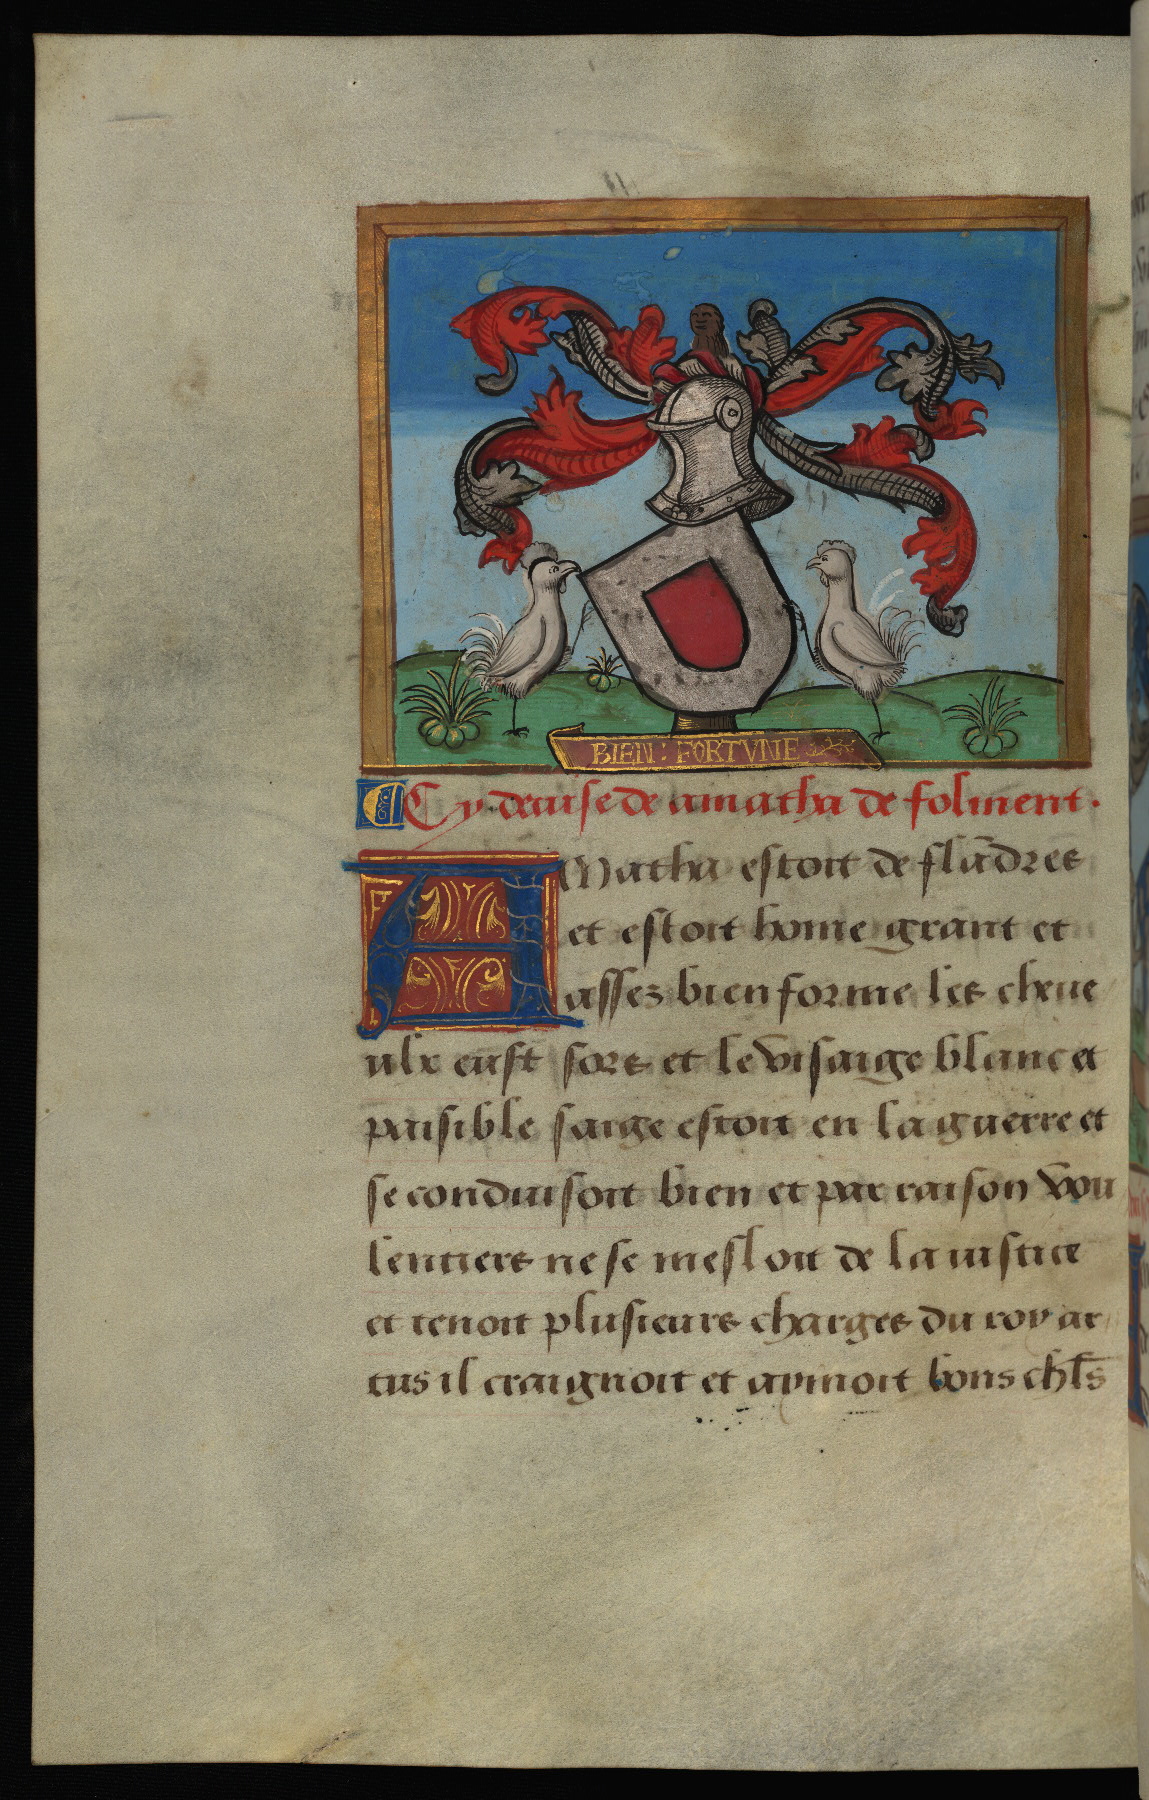 BIEN : FORTVNE
Cy deuise de amatha de folment.
AMatha estoit de flādres
et estoit home grant et
assez bien forme les cheue
ulx eust sors et le visaige blanc et
paisible saige estoit en la guerre et
se conduisoit bien et par raison vou
lentiers ne se mesloit de la iustice
et tenoit plusieurs charges du roy ar
tus il craignoit et aymoit bons chl̄s